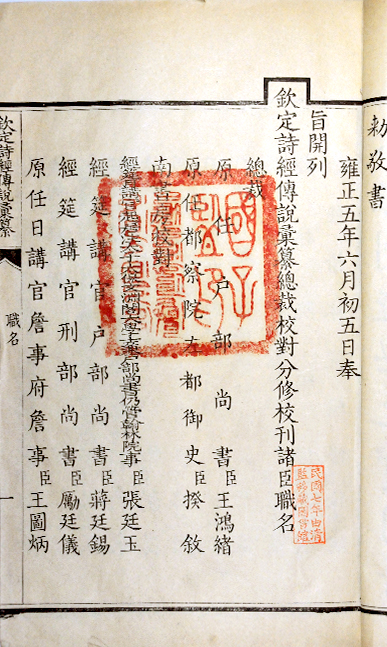 勅敬書
雍正五年六月初五日奉
旨開列
欽定詩經傳說彙纂總裁校對分修校刊諸臣職名
總裁
原任戶部尚書臣王鴻緒
原任都察院左都御史臣揆敘
南書房校對
經筵講官尚書仍管翰林院事臣張廷玉
經筵講官戶部尚書臣蔣廷錫
經筵講官刑部尚書臣勵廷儀
原任日講官詹事府詹事臣王圖炳
欽定詩經傳說彙纂
職名
一
國子監印
民國七年由清